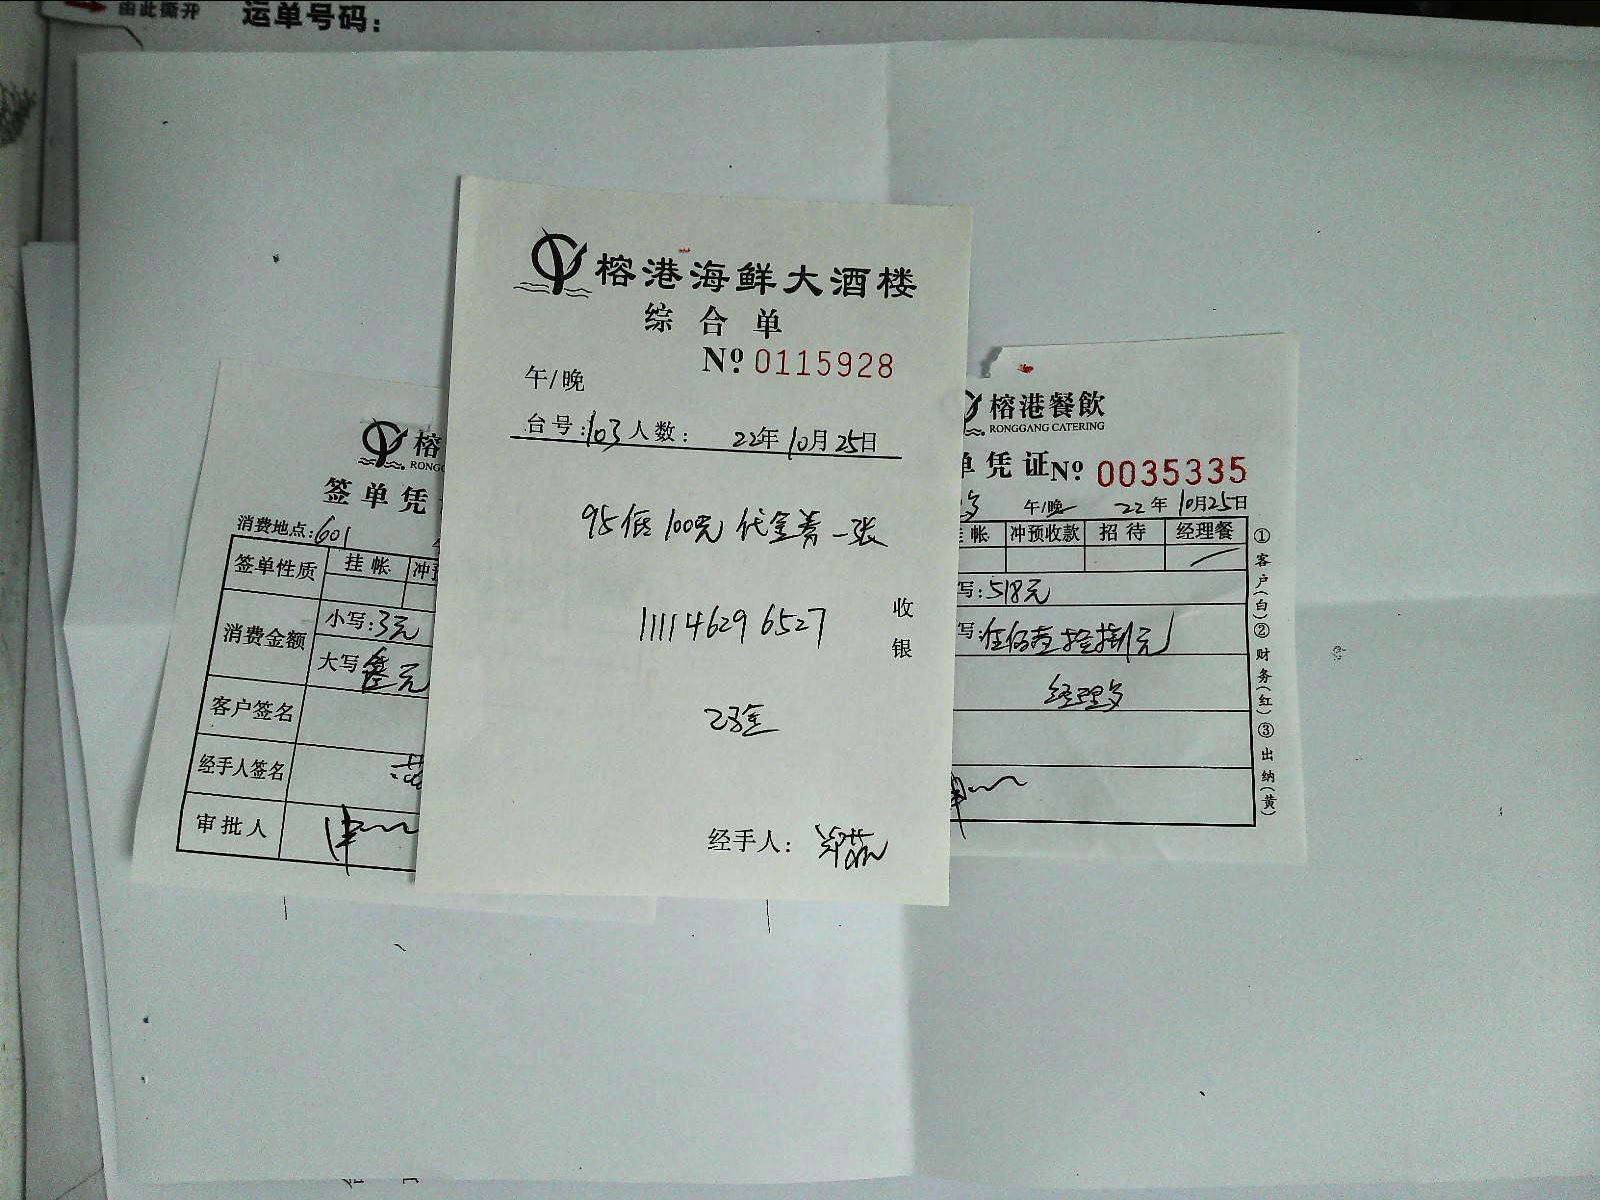 由此撕开
运单号码:
榕港海鲜大酒楼
综合单
№ 0115928
午/晚
台号:103 人数: 22年10月25日
95低100元代金券一张
11114629 6527
收银
经手人:
榕
RONGG
签单凭
消费地点:601
签单性质 挂帐 冲预
消费金额 小写:3元
大写 叁元
客户签名
经手人签名
审批人
榕港餐飲
RONGGANG CATERING
单凭证№ 0035335
午/晚 22年10月25日
挂帐 冲预收款 招待 经理餐
写:518元
写:伍佰壹拾捌元
①客户(白)②财务(红)③出纳(黄)